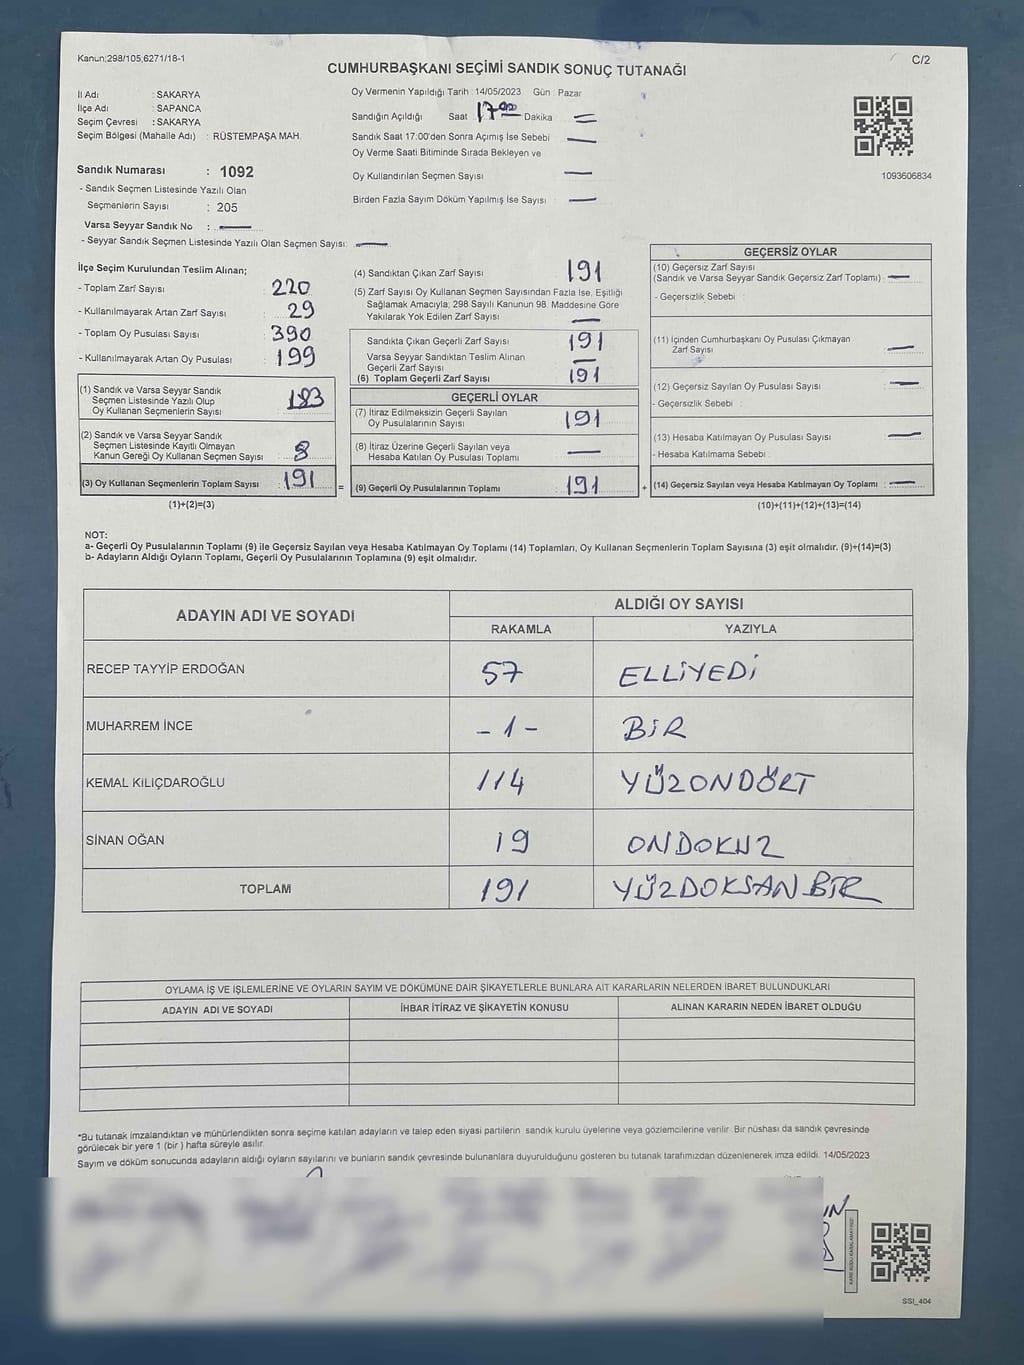 Kanun;298/105,6271/18-1
C/2
CUMHURBAŞKANI SEÇİMİ SANDIK SONUÇ TUTANAĞI
İl Adı : SAKARYA
İlçe Adı : SAPANCA
Seçim Çevresi : SAKARYA
Seçim Bölgesi (Mahalle Adı) : RÜSTEMPAŞA MAH.
Sandık Numarası : 1092
- Sandık Seçmen Listesinde Yazılı Olan
Seçmenlerin Sayısı : 205
Varsa Seyyar Sandık No : —
- Seyyar Sandık Seçmen Listesinde Yazılı Olan Seçmen Sayısı: —
Oy Vermenin Yapıldığı Tarih : 14/05/2023 Gün : Pazar
Sandığın Açıldığı Saat 17:00 Dakika =
Sandık Saat 17:00'den Sonra Açımış İse Sebebi —
Oy Verme Saati Bitiminde Sırada Bekleyen ve
Oy Kullandırılan Seçmen Sayısı —
Birden Fazla Sayım Döküm Yapılmış İse Sayısı —
1093606834
İlçe Seçim Kurulundan Teslim Alınan;
- Toplam Zarf Sayısı : 220
- Kullanılmayarak Artan Zarf Sayısı : 29
- Toplam Oy Pusulası Sayısı : 390
- Kullanılmayarak Artan Oy Pusulası : 199
(1) Sandık ve Varsa Seyyar Sandık
Seçmen Listesinde Yazılı Olup
Oy Kullanan Seçmenlerin Sayısı : 183
(2) Sandık ve Varsa Seyyar Sandık
Seçmen Listesinde Kayıtlı Olmayan
Kanun Gereği Oy Kullanan Seçmen Sayısı : 8
(3) Oy Kullanan Seçmenlerin Toplam Sayısı : 191 =
(1)+(2)=(3)
(4) Sandıktan Çıkan Zarf Sayısı 191
(5) Zarf Sayısı Oy Kullanan Seçmen Sayısından Fazla İse, Eşitliği
Sağlamak Amacıyla; 298 Sayılı Kanunun 98. Maddesine Göre
Yakılarak Yok Edilen Zarf Sayısı —
Sandıkta Çıkan Geçerli Zarf Sayısı 191
Varsa Seyyar Sandıktan Teslim Alınan
Geçerli Zarf Sayısı —
(6) Toplam Geçerli Zarf Sayısı 191
GEÇERLİ OYLAR
(7) İtiraz Edilmeksizin Geçerli Sayılan
Oy Pusulalarının Sayısı 191
(8) İtiraz Üzerine Geçerli Sayılan veya
Hesaba Katılan Oy Pusulası Toplamı —
(9) Geçerli Oy Pusulalarının Toplamı 191 +
GEÇERSİZ OYLAR
(10) Geçersiz Zarf Sayısı
(Sandık ve Varsa Seyyar Sandık Geçersiz Zarf Toplamı) : —
- Geçersizlik Sebebi :
(11) İçinden Cumhurbaşkanı Oy Pusulası Çıkmayan
Zarf Sayısı —
(12) Geçersiz Sayılan Oy Pusulası Sayısı —
- Geçersizlik Sebebi :
(13) Hesaba Katılmayan Oy Pusulası Sayısı —
- Hesaba Katılmama Sebebi :
(14) Geçersiz Sayılan veya Hesaba Katılmayan Oy Toplamı : —
(10)+(11)+(12)+(13)=(14)
NOT:
a- Geçerli Oy Pusulalarının Toplamı (9) ile Geçersiz Sayılan veya Hesaba Katılmayan Oy Toplamı (14) Toplamları, Oy Kullanan Seçmenlerin Toplam Sayısına (3) eşit olmalıdır. (9)+(14)=(3)
b- Adayların Aldığı Oyların Toplamı, Geçerli Oy Pusulalarının Toplamına (9) eşit olmalıdır.
ADAYIN ADI VE SOYADI ALDIĞI OY SAYISI
RAKAMLA YAZIYLA
RECEP TAYYİP ERDOĞAN 57 ELLİYEDİ
MUHARREM İNCE -1- BİR
KEMAL KILIÇDAROĞLU 114 YÜZONDÖRT
SİNAN OĞAN 19 ONDOKUZ
TOPLAM 191 YÜZDOKSANBİR
OYLAMA İŞ VE İŞLEMLERİNE VE OYLARIN SAYIM VE DÖKÜMÜNE DAİR ŞİKAYETLERLE BUNLARA AİT KARARLARIN NELERDEN İBARET BULUNDUKLARI
ADAYIN ADI VE SOYADI İHBAR İTİRAZ VE ŞİKAYETİN KONUSU ALINAN KARARIN NEDEN İBARET OLDUĞU
*Bu tutanak imzalandıktan ve mühürlendikten sonra seçime katılan adayların ve talep eden siyasi partilerin sandık kurulu üyelerine veya gözlemcilerine verilir. Bir nüshası da sandık çevresinde
görülecek bir yere 1 (bir ) hafta süreyle asılır.
Sayım ve döküm sonucunda adayların aldığı oyların sayılarını ve bunların sandık çevresinde bulunanlara duyurulduğunu gösteren bu tutanak tarafımızdan düzenlenerek imza edildi. 14/05/2023
KARE KODU KARALAMAYINIZ!
SSI_404